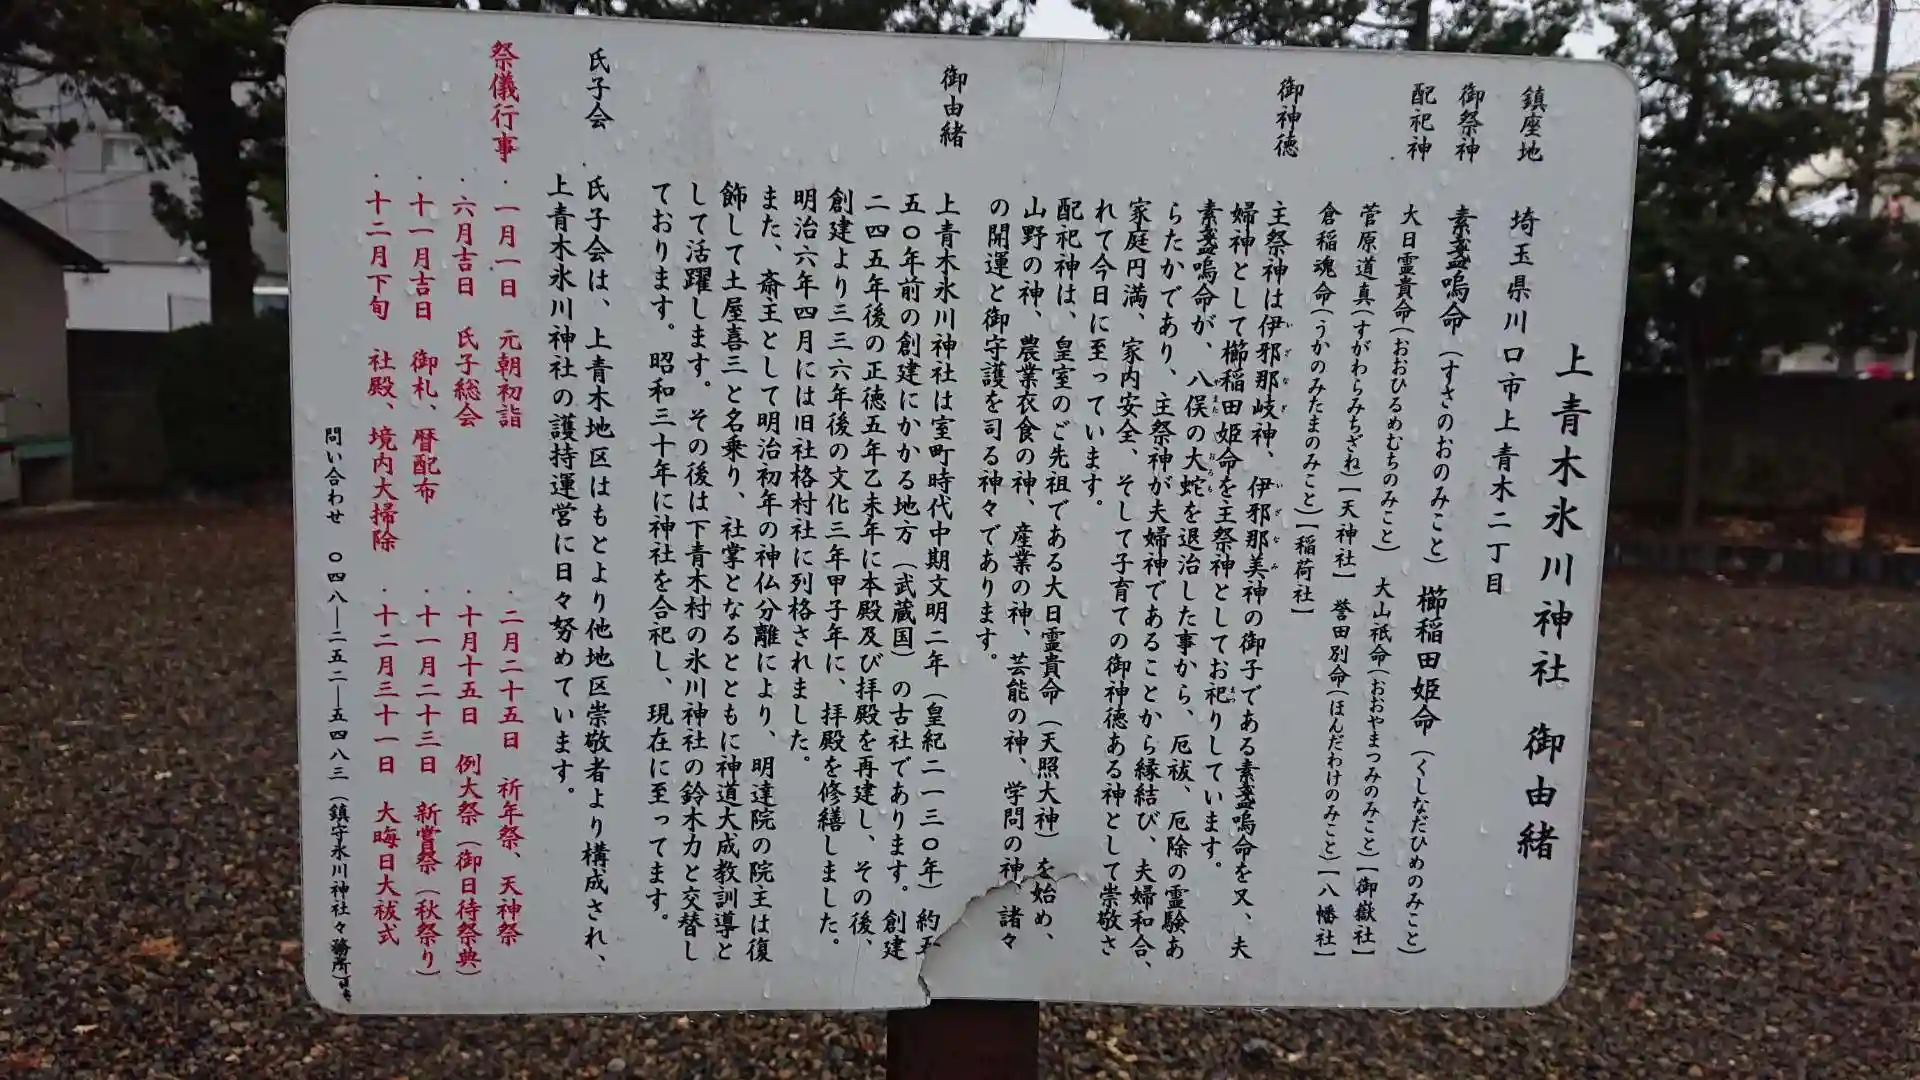 上青木氷川神社　御由緒
鎮座地　埼玉県川口市上青木二丁目
御祭神　素盞嗚命（すさのおのみこと）　櫛稲田姫命（くしなだひめのみこと）
配祀神　大日霊貴命（おおひるめむちのみこと）　大山祇命（おおやまつみのみこと）【御嶽社】
菅原道真（すがわらみちざね）【天神社】　誉田別命（ほんだわけのみこと）【八幡社】
倉稲魂命（うかのみたまのみこと）【稲荷社】
御神徳　主祭神は伊邪那岐神、伊邪那美神の御子である素盞嗚命を又、夫
婦神として櫛稲田姫命を主祭神としてお祀りしています。
素盞嗚命が、八俣の大蛇を退治した事から、厄祓、厄除の霊験あ
らたかであり、主祭神が夫婦神であることから縁結び、夫婦和合、
家庭円満、家内安全、そして子育ての御神徳ある神として崇敬さ
れて今日に至っています。
配祀神は、皇室のご先祖である大日霊貴命（天照大神）を始め、
山野の神、農業衣食の神、産業の神、芸能の神、学問の神、諸々
の開運と御守護を司る神々であります。
御由緒　上青木氷川神社は室町時代中期文明二年（皇紀二一三〇年）約五
五〇年前の創建にかかる地方（武蔵国）の古社であります。創建
二四五年後の正徳五年乙未年に本殿及び拝殿を再建し、その後、
創建より三三六年後の文化三年甲子年に、拝殿を修繕しました。
明治六年四月には旧社格村社に列格されました。
また、斎主として明治初年の神仏分離により、明達院の院主は復
飾して土屋喜三と名乗り、社掌となるとともに神道大成教訓導と
して活躍します。その後は下青木村の氷川神社の鈴木力と交替し
ております。昭和三十年に神社を合祀し、現在に至ってます。
氏子会　氏子会は、上青木地区はもとより他地区崇敬者より構成され、
上青木氷川神社の護持運営に日々努めています。
祭儀行事　・一月一日　元朝初詣　・二月二十五日　祈年祭、天神祭
・六月吉日　氏子総会　・十月十五日　例大祭（御日待祭典）
・十一月吉日　御札、暦配布　・十一月二十三日　新嘗祭（秋祭り）
・十二月下旬　社殿、境内大掃除　・十二月三十一日　大晦日大祓式
問い合わせ　〇四八―二五二―五四八三（鎮守氷川神社々務所）まで